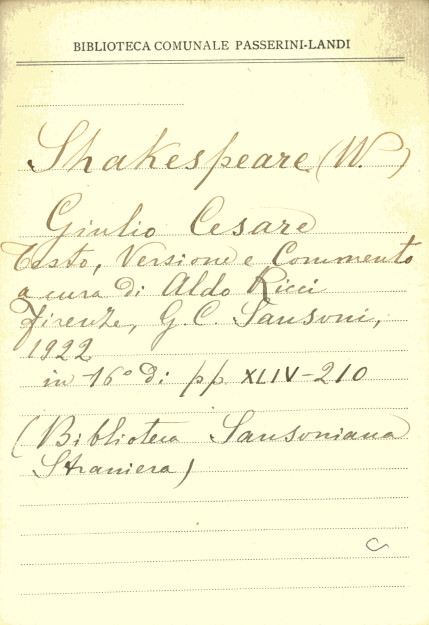 BIBLIOTECA COMUNALE PASSERINI-LANDI
Shakespeare (W.)
Giulio Cesare
Testo, Versione e Commento
a cura di Aldo Ricci
Firenze, G. C. Sansoni,
1922
in 16° di pp XLIV-210
(Biblioteca Sansoniana
Straniera)
C